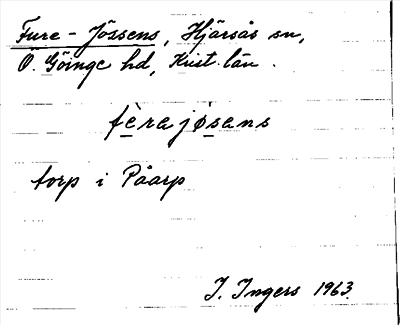 Fure-Jössens, Hjärsås sn,
Ö. Göinge hd, Krist. län.
fèrejøsens
torp i Påarp
I. Ingers 1963.